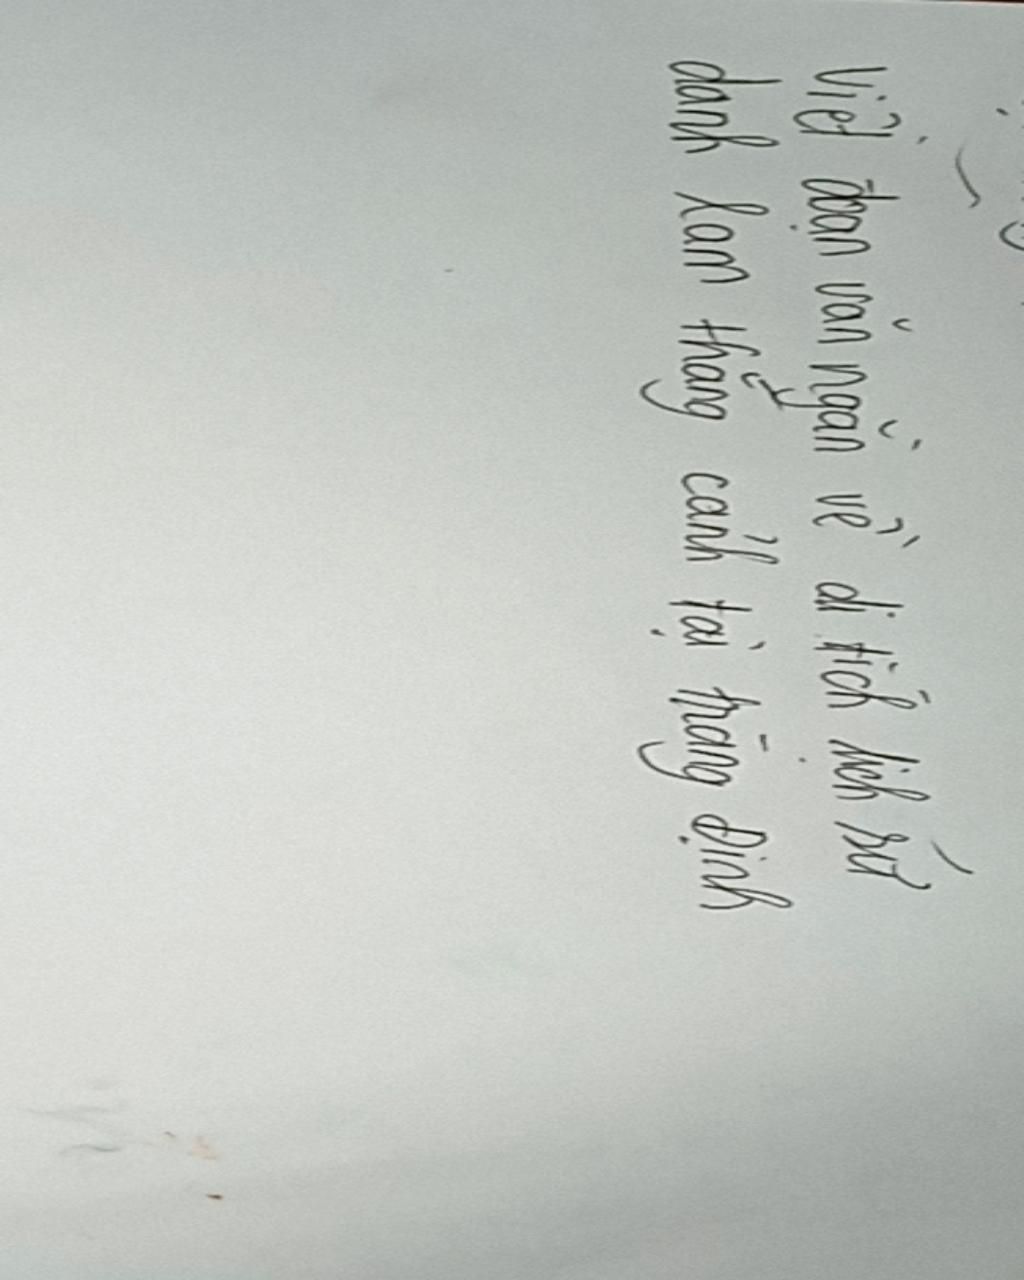 Viết đoạn văn ngắn về di tích lịch sử
danh lam thắng cảnh tại tràng Định